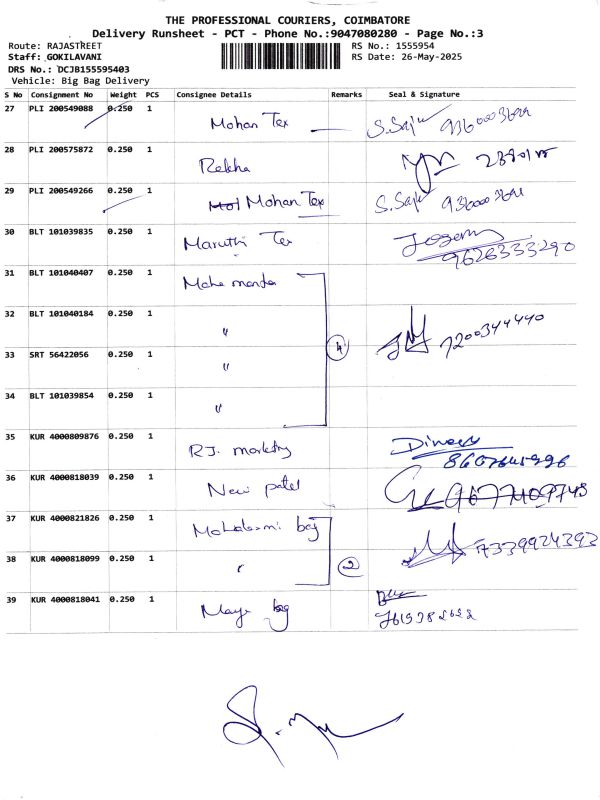 THE PROFESSIONAL COURIERS, COIMBATORE
Delivery Runsheet - PCT - Phone No.:9047080280 - Page No.:3
Route: RAJASTREET RS No.: 1555954
Staff: GOKILAVANI RS Date: 26-May-2025
DRS No.: DCJB155595403
Vehicle: Big Bag Delivery
S No Consignment No Weight PCS Consignee Details Remarks Seal & Signature
27 PLI 200549088 0.250 1 Mohan Tex
28 PLI 200575872 0.250 1 Rekha
29 PLI 200549266 0.250 1 Mohan Tex
30 BLT 101039835 0.250 1 Maruthi Tex 9626333290
31 BLT 101040407 0.250 1
32 BLT 101040184 0.250 1 " 7200344440
33 SRT 56422056 0.250 1 " 4
34 BLT 101039854 0.250 1 "
35 KUR 4000809876 0.250 1 RJ. marketing
36 KUR 4000818039 0.250 1 New patel 9677409743
37 KUR 4000821826 0.250 1 bag 7339924393
38 KUR 4000818099 0.250 1 " 2
39 KUR 4000818041 0.250 1 bag